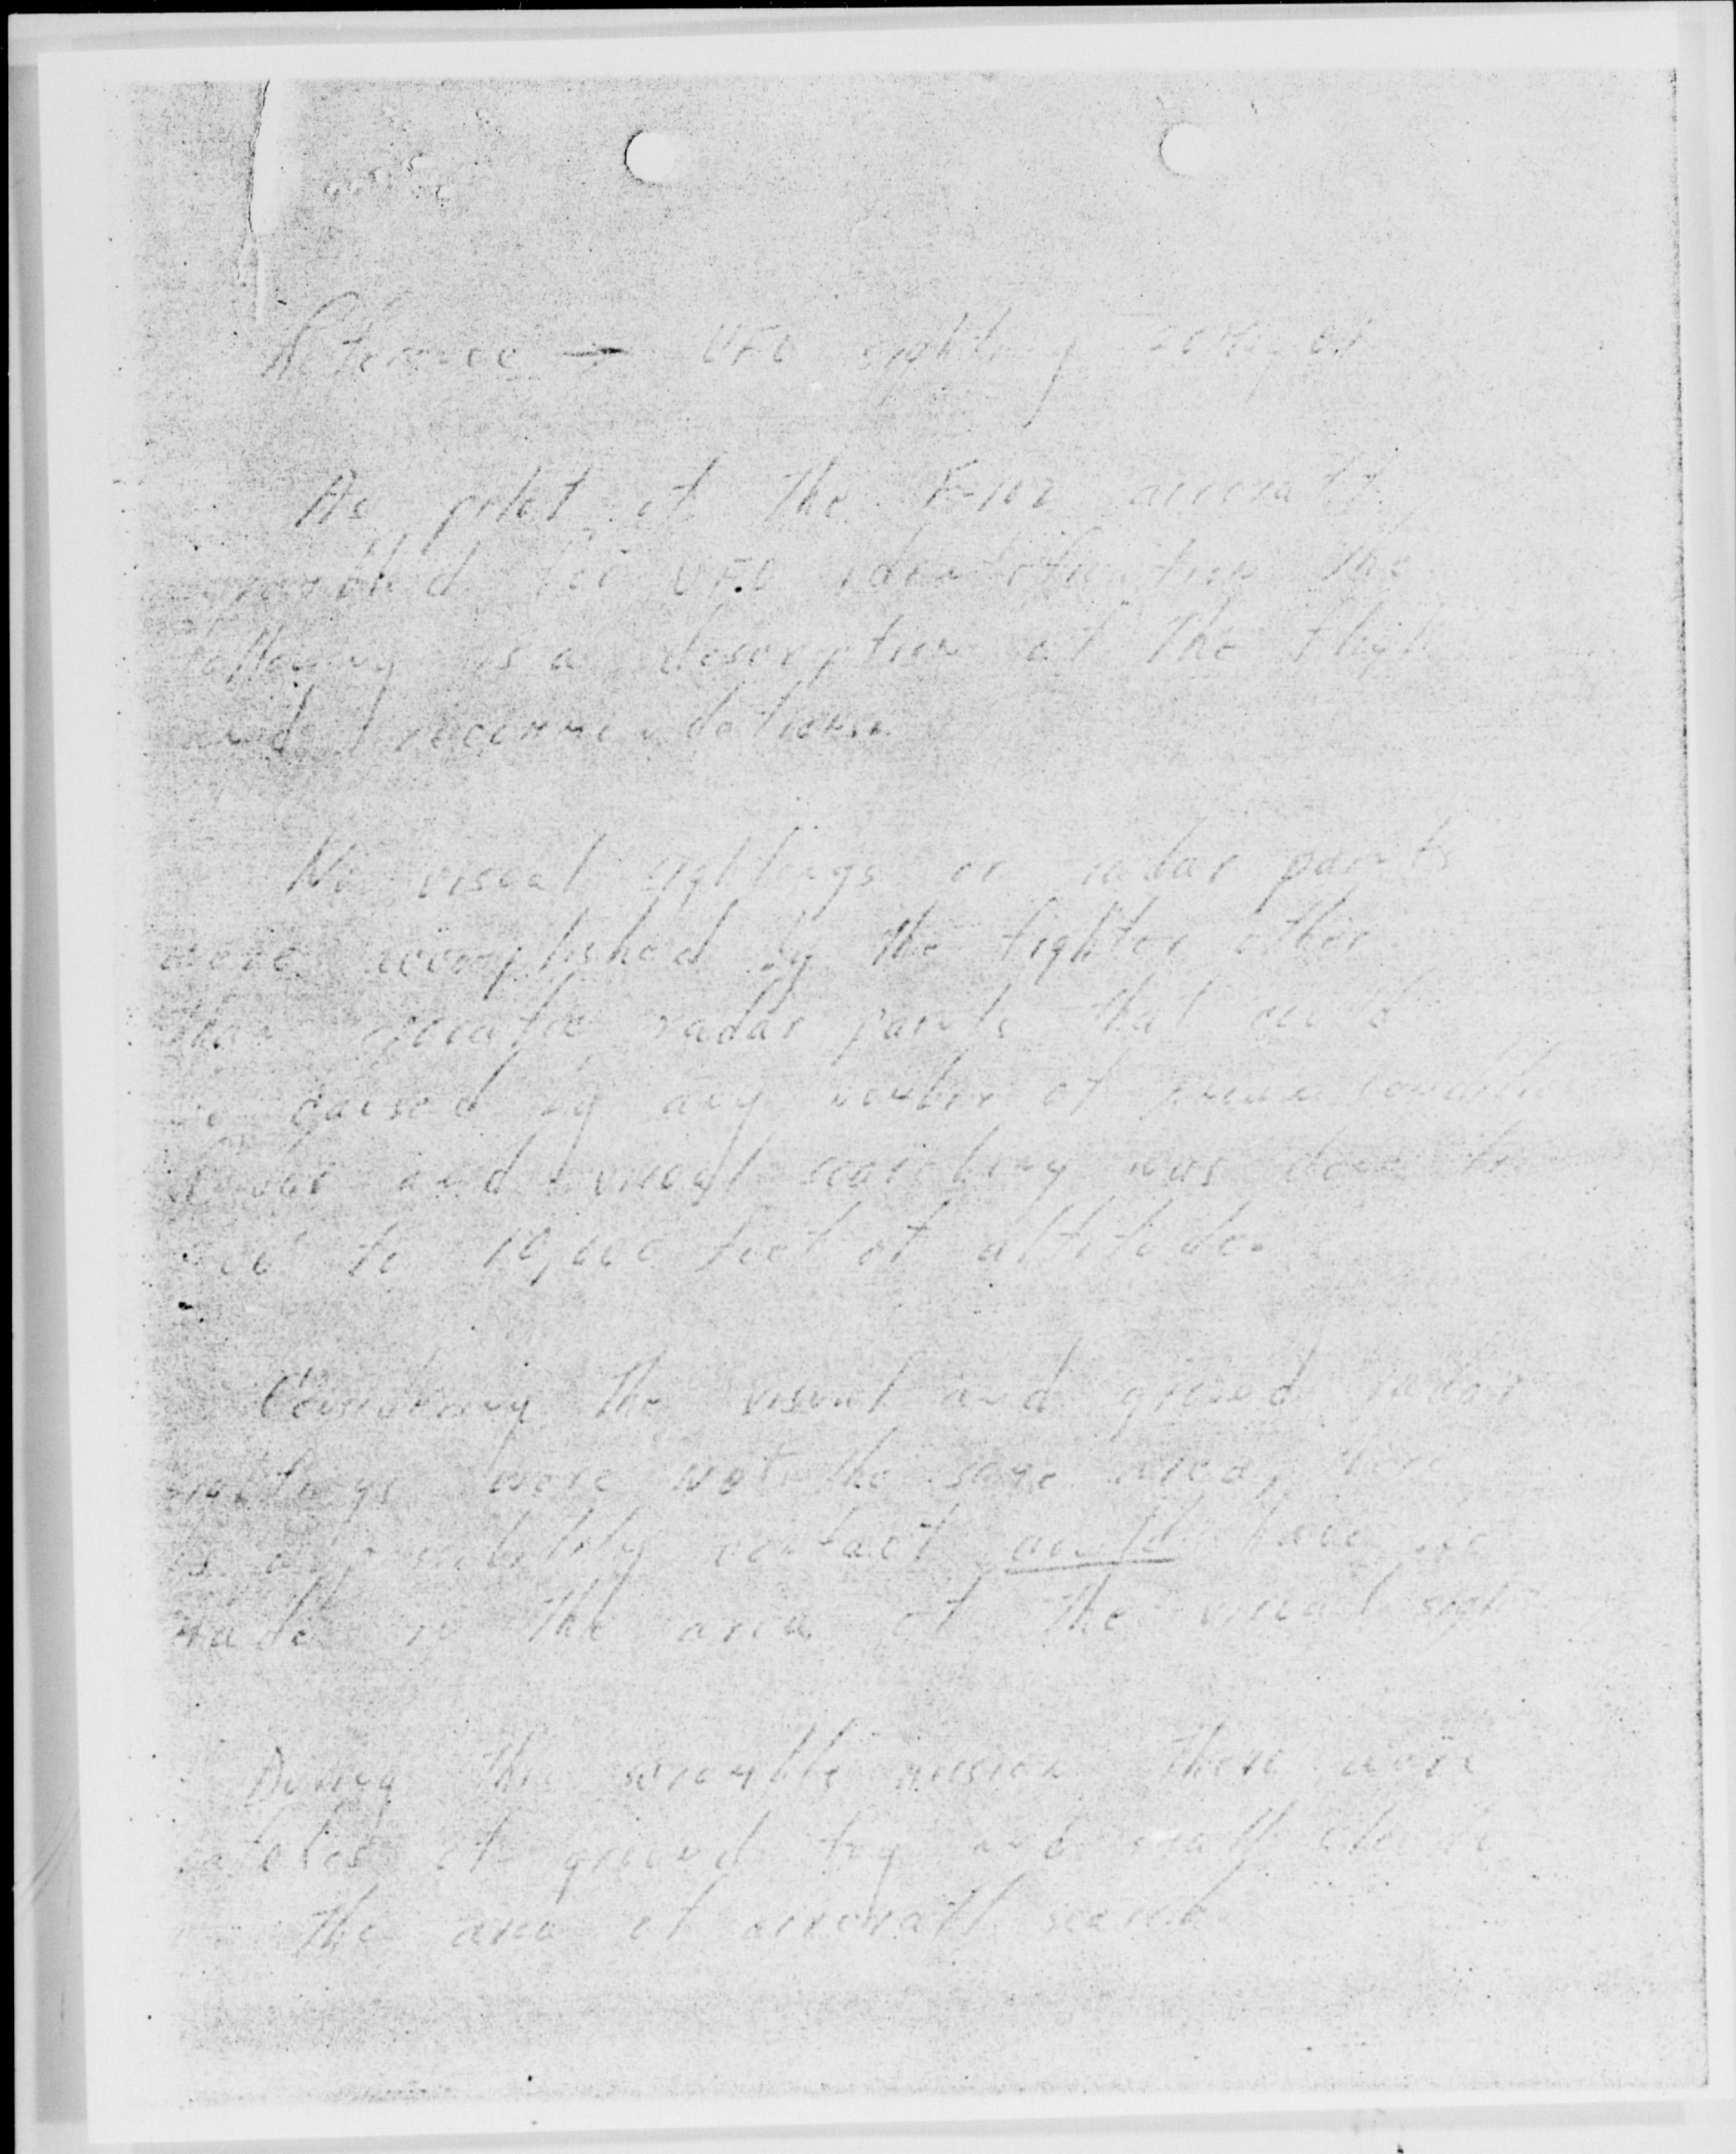 Reference — UFO sighting
As pilot of the F-102 aircraft
scrambled for UFO identification the
following is a description of the flight
and recommendations.
No visual sightings or radar paints
were accomplished by the fighter other
than radar paints that could
be caused by any number of
Radar and visual searching was done
to 10,000 feet of altitude.
Considering the visual and ground radar
sightings were not the same area, there
is a possibility contact could have
made in the area of the visual
During the scramble mission there were
patches of ground fog and small clouds
the area of aircraft search